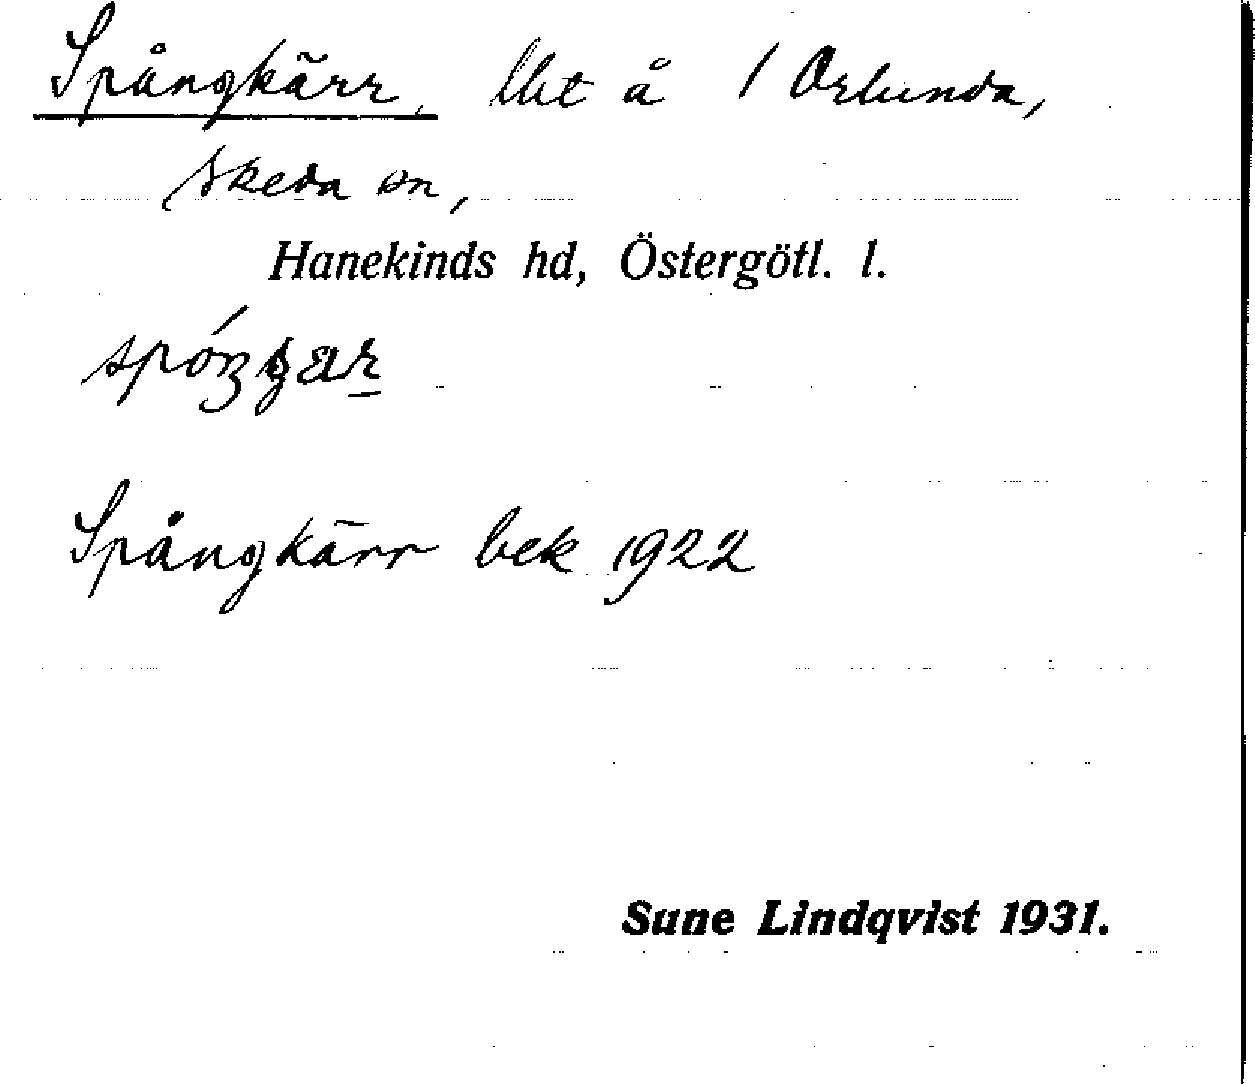 Spångkärr, lht å 1 Orlunda,
Skeda sn,
Hanekinds hd, Östergötl. l.
Spångkärr bek 1922
Sune Lindqvist 1931.